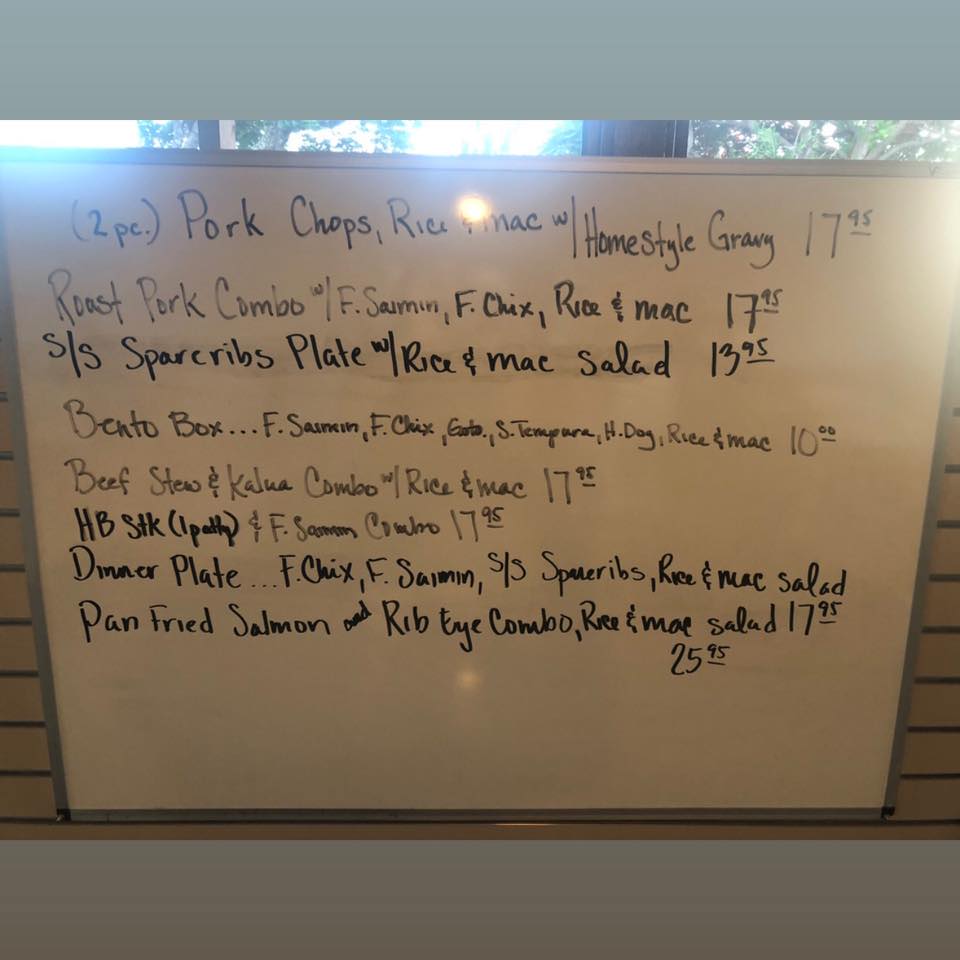 (2 pc.) Pork Chops, Rice & mac w/ Homestyle Gravy 17.95
Roast Pork Combo w/ F. Saimin, F. Chix, Rice & mac 17.95
S/S Spareribs Plate w/ Rice & mac salad 13.95
Bento Box... F. Saimin, F. Chix, S. Tempura, H. Dog, Rice & mac 10.00
Beef Stew & Kalua Combo w/ Rice & mac 17.95
HB Stk (1 patty) & F. Saimin Combo 17.95
Dinner Plate... F. Chix, F. Saimin, S/S Spareribs, Rice & mac salad
Pan Fried Salmon and Rib Eye Combo, Rice & mac salad 17.95
25.95